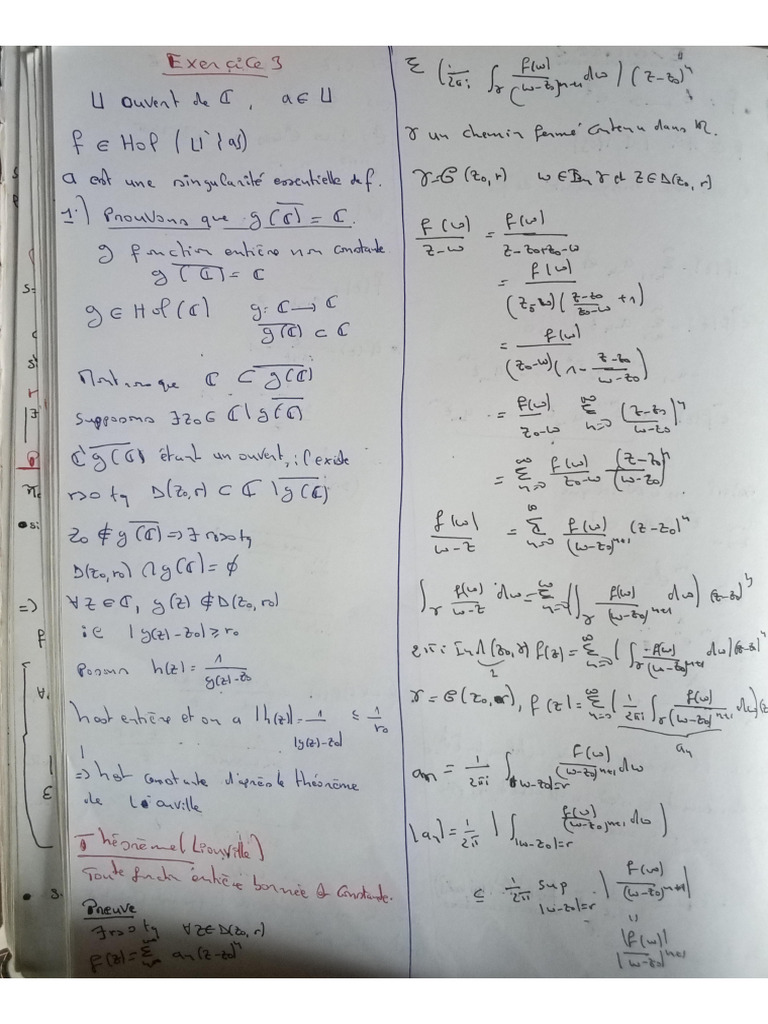 Exercice 3
U ouvert de ℂ, a ∈ U
f ∈ Hol (U \ {a})
a est une singularité essentielle de f.
1°) Prouvons que \overline{g(ℂ)} = ℂ.
g fonction entière non constante
\overline{g(ℂ)} = ℂ
g ∈ Hol(ℂ) g: ℂ → ℂ
\overline{g(ℂ)} ⊂ ℂ
Montrons que ℂ ⊂ \overline{g(ℂ)}
Supposons ∃ z_0 ∈ ℂ \ \overline{g(ℂ)}
ℂ \ \overline{g(ℂ)} étant un ouvert, il existe
r>0 tq D(z_0, r) ⊂ ℂ \ \overline{g(ℂ)}
z_0 ∉ \overline{g(ℂ)} => ∃ r>0 tq
D(z_0, r_0) ∩ g(ℂ) = ∅
∀ z ∈ ℂ, g(z) ∉ D(z_0, r_0)
ie |g(z) - z_0| ≥ r_0
Posons h(z) = 1/(g(z) - z_0)
h est entière et on a |h(z)| = 1/|g(z) - z_0| ≤ 1/r_0
=> h est constante d'après le théorème
de Liouville
Théorème (Liouville)
Toute fonction entière bornée est constante.
Preuve
∃ r>0 tq ∀ z ∈ D(z_0, r)
f(z) = Σ^∞ a_n (z - z_0)^n
Σ (1/2πi ∫_γ f(w)/(w - z_0)^{n+1} dw) (z - z_0)^n
γ un chemin fermé contenu dans
γ = C(z_0, r) w ∈ Im γ et z ∈ D(z_0, r)
f(w)/(z - w) = f(w)/(z - z_0 + z_0 - w)
= f(w)/((z_0 - w)((z - z_0)/(z_0 - w) + 1))
= f(w)/((z_0 - w)(1 - (z - z_0)/(w - z_0)))
= f(w)/(z_0 - w) Σ_{n=0}^∞ ((z - z_0)/(w - z_0))^n
= Σ_{n=0}^∞ f(w)/(z_0 - w) (z - z_0)^n/(w - z_0)
f(w)/(w - z) = Σ_{n=0}^∞ f(w)/(w - z_0)^{n+1} (z - z_0)^n
∫_γ f(w)/(w - z) dw = Σ_{n=0}^∞ (∫_γ f(w)/(w - z_0)^{n+1} dw) (z - z_0)^n
2πi Ind (z_0, γ) f(z) = Σ_{n=0}^∞ (∫_γ f(w)/(w - z_0)^{n+1} dw)(z - z_0)^n
1
γ = C(z_0, r), f(z) = Σ_{n=0}^∞ (1/2πi ∫_γ f(w)/(w - z_0)^{n+1} dw)(z
a_n
a_n = 1/2πi ∫_{|w - z_0| = r} f(w)/(w - z_0)^{n+1} dw
|a_n| = 1/2π | ∫_{|w - z_0| = r} f(w)/(w - z_0)^{n+1} dw |
≤ 1/2π sup_{|w - z_0| = r} | f(w)/(w - z_0)^{n+1} |
=
|f(w)|/|w - z_0|^{n+1}